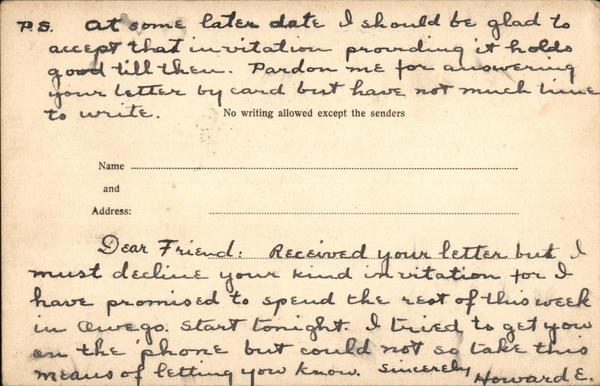 P.S. At some later date I should be glad to
accept that invitation providing it holds
good till then. Pardon me for answering
your letter by card but have not much time
to write.
No writing allowed except the senders
Name
and
Address:
Dear Friend: Received your letter but I
must decline your kind invitation for I
have promised to spend the rest of this week
in Owego. Start tonight. I tried to get you
on the 'phone but could not so take this
means of letting you know. Sincerely
Howard E.